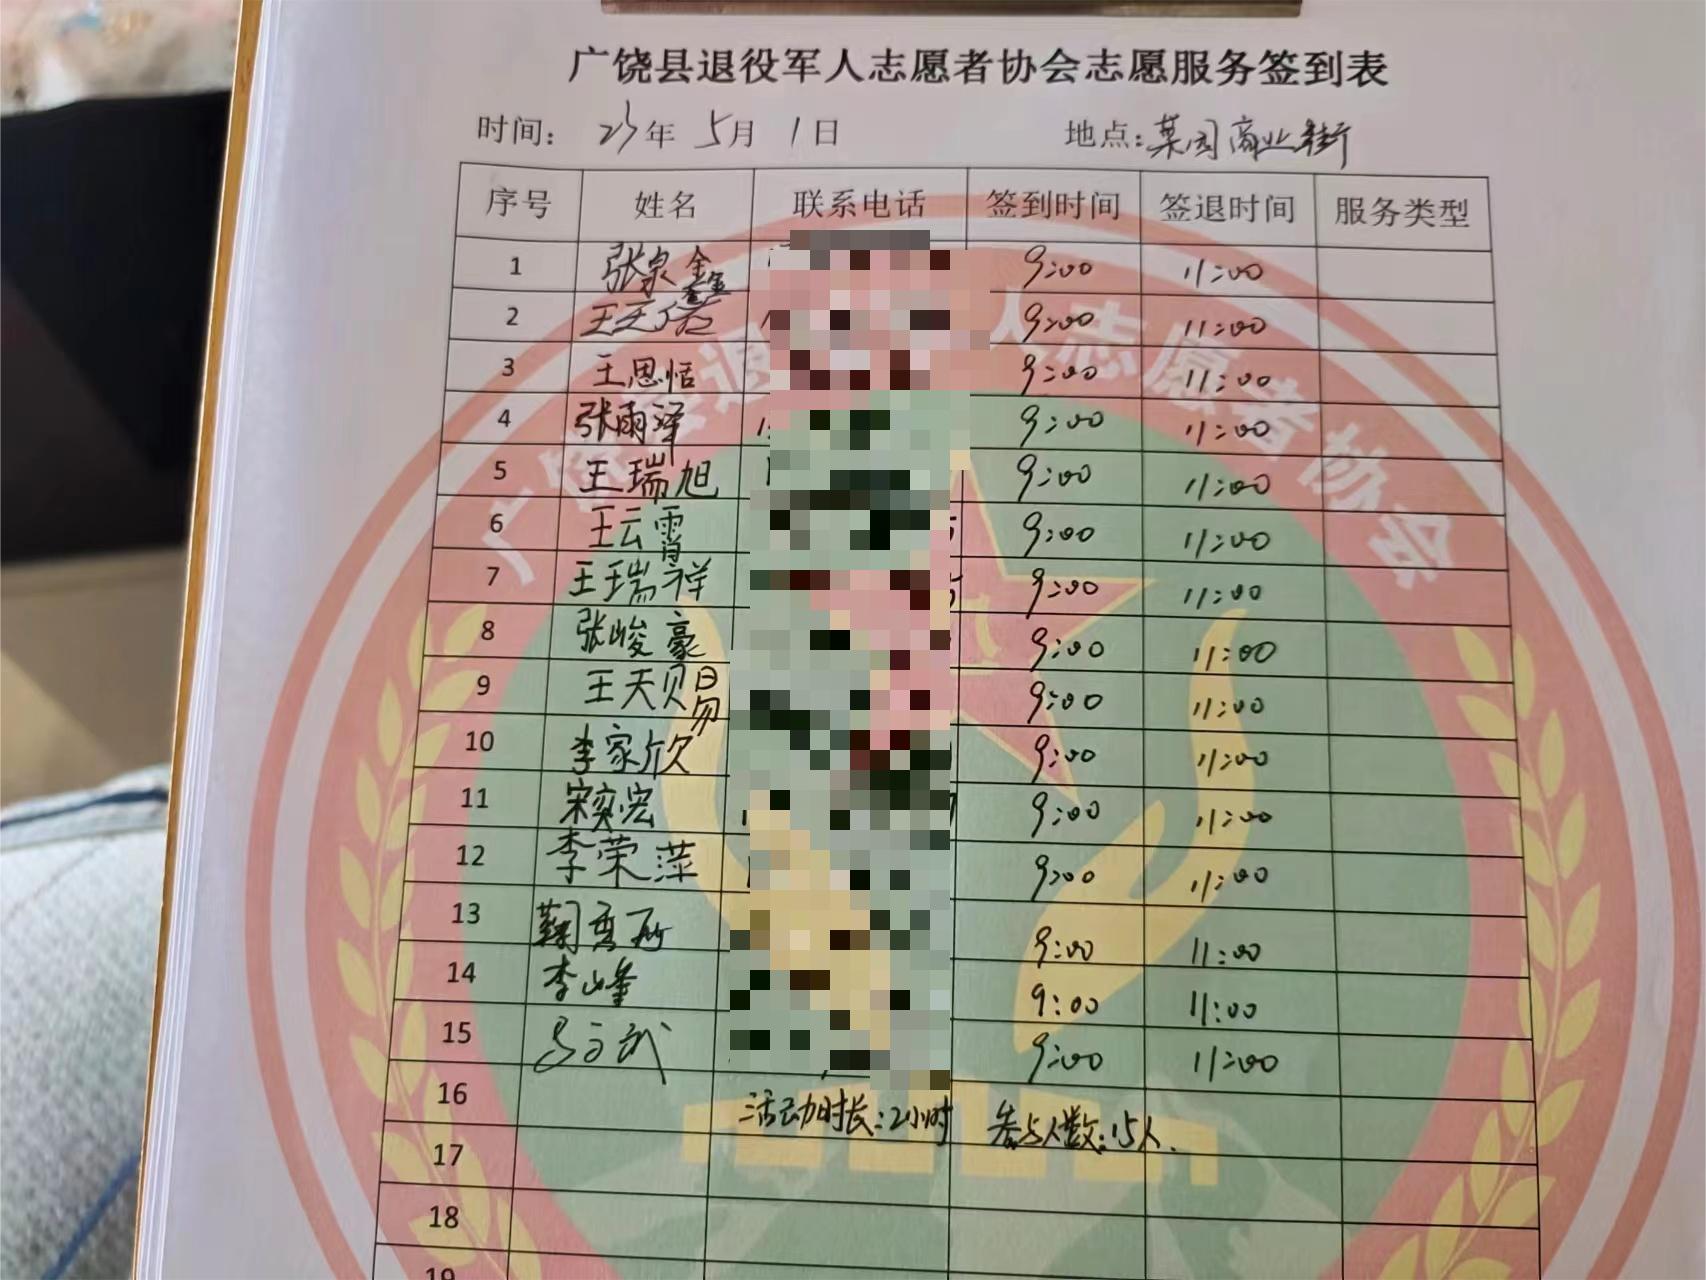 广饶县退役军人志愿者协会志愿服务签到表
时间: 23年 5月 1日 地点: 菜园商业街
序号 姓名 联系电话 签到时间 签退时间 服务类型
1 张泉鑫 9:00 11:00
2 9:00 11:00
3 王思恬 9:00 11:00
4 张雨泽 9:00 11:00
5 王瑞旭 9:00 11:00
6 王云霄 9:00 11:00
7 王瑞祥 9:00 11:00
8 张峻豪 9:00 11:00
9 王天赐 9:00 11:00
10 李家欣 9:00 11:00
11 宋奕宏 9:00 11:00
12 李荣萍 9:00 11:00
13 9:00 11:00
14 李峰 9:00 11:00
15 9:00 11:00
16 活动时长:2小时 参与人数:15人.
17
18
19
人志愿者协会